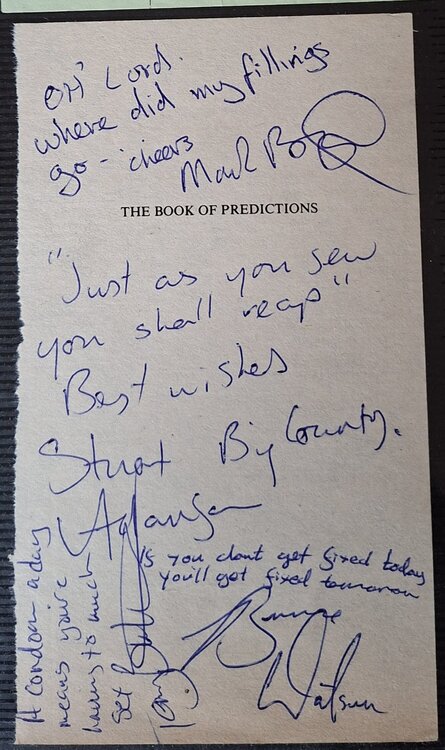 OH' Lord.
where did my fillings
go - cheers
Mark
THE BOOK OF PREDICTIONS
"Just as you sew
you shall reap"
Best wishes
Stuart Big Country.
Adamson
Is you dont get fixed today
you'll get fixed tomorrow
Tony Bruce
Watson
A condom a day
means you're
having to much
sex